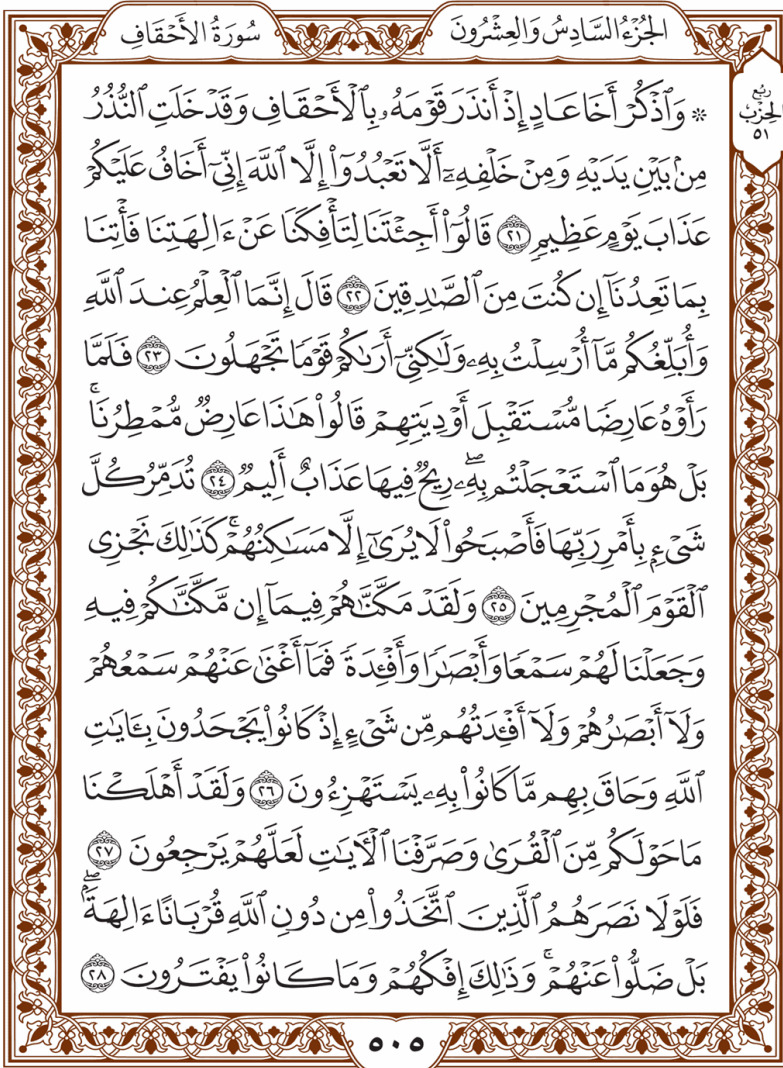 الجُزْءُ السَّادِسُ وَالعِشْرُونَ
سُورَةُ الأَحْقَافِ
رُبُع
الحِزْبِ
٥١
۞ وَٱذْكُرْ أَخَا عَادٍ إِذْ أَنذَرَ قَوْمَهُۥ بِٱلْأَحْقَافِ وَقَدْ خَلَتِ ٱلنُّذُرُ
مِنۢ بَيْنِ يَدَيْهِ وَمِنْ خَلْفِهِۦٓ أَلَّا تَعْبُدُوٓا۟ إِلَّا ٱللَّهَ إِنِّىٓ أَخَافُ عَلَيْكُمْ
عَذَابَ يَوْمٍ عَظِيمٍ ٢١ قَالُوٓا۟ أَجِئْتَنَا لِتَأْفِكَنَا عَنْ ءَالِهَتِنَا فَأْتِنَا
بِمَا تَعِدُنَآ إِن كُنتَ مِنَ ٱلصَّٰدِقِينَ ٢٢ قَالَ إِنَّمَا ٱلْعِلْمُ عِندَ ٱللَّهِ
وَأُبَلِّغُكُم مَّآ أُرْسِلْتُ بِهِۦ وَلَٰكِنِّىٓ أَرَىٰكُمْ قَوْمًا تَجْهَلُونَ ٢٣ فَلَمَّا
رَأَوْهُ عَارِضًا مُّسْتَقْبِلَ أَوْدِيَتِهِمْ قَالُوا۟ هَٰذَا عَارِضٌ مُّمْطِرُنَا ۚ
بَلْ هُوَ مَا ٱسْتَعْجَلْتُم بِهِۦ ۖ رِيحٌ فِيهَا عَذَابٌ أَلِيمٌ ٢٤ تُدَمِّرُ كُلَّ
شَىْءٍۭ بِأَمْرِ رَبِّهَا فَأَصْبَحُوا۟ لَا يُرَىٰٓ إِلَّا مَسَٰكِنُهُمْ ۚ كَذَٰلِكَ نَجْزِى
ٱلْقَوْمَ ٱلْمُجْرِمِينَ ٢٥ وَلَقَدْ مَكَّنَّٰهُمْ فِيمَآ إِن مَّكَّنَّٰكُمْ فِيهِ
وَجَعَلْنَا لَهُمْ سَمْعًا وَأَبْصَٰرًا وَأَفْـِٔدَةً فَمَآ أَغْنَىٰ عَنْهُمْ سَمْعُهُمْ
وَلَآ أَبْصَٰرُهُمْ وَلَآ أَفْـِٔدَتُهُم مِّن شَىْءٍ إِذْ كَانُوا۟ يَجْحَدُونَ بِـَٔايَٰتِ
ٱللَّهِ وَحَاقَ بِهِم مَّا كَانُوا۟ بِهِۦ يَسْتَهْزِءُونَ ٢٦ وَلَقَدْ أَهْلَكْنَا
مَا حَوْلَكُم مِّنَ ٱلْقُرَىٰ وَصَرَّفْنَا ٱلْـَٔايَٰتِ لَعَلَّهُمْ يَرْجِعُونَ ٢٧
فَلَوْلَا نَصَرَهُمُ ٱلَّذِينَ ٱتَّخَذُوا۟ مِن دُونِ ٱللَّهِ قُرْبَانًا ءَالِهَةًۢ ۖ
بَلْ ضَلُّوا۟ عَنْهُمْ ۚ وَذَٰلِكَ إِفْكُهُمْ وَمَا كَانُوا۟ يَفْتَرُونَ ٢٨
٥٠٥